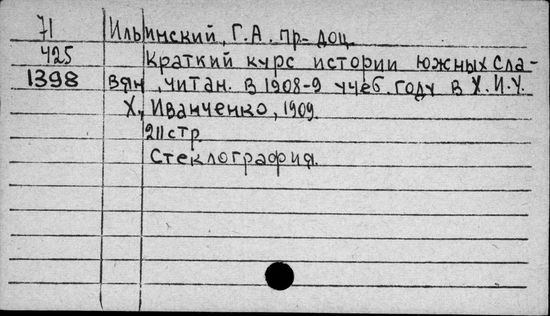 71 Ильинский, Г.А. пр-доц.
425 Краткий курс истории южных сла-
1398 вян, читан. в 1908-9 учеб. году в Х.И.У.
Х, Иванченко, 1909.
211 стр.
Стеклография.